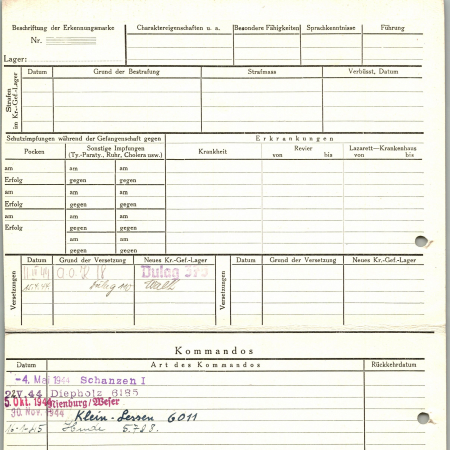 Beschriftung der Erkennungsmarke
Nr.
Lager:
Charaktereigenschaften u. a.
Besondere Fähigkeiten
Sprachkenntnisse
Führung
Strafen im Kr.-Gef.-Lager
Datum
Grund der Bestrafung
Strafmass
Verbüsst, Datum
Schutzimpfungen während der Gefangenschaft gegen
Erkrankungen
Pocken
Sonstige Impfungen
(Ty.-Paraty., Ruhr, Cholera usw.)
Krankheit
Revier
von bis
Lazarett—Krankenhaus
von bis
am am am
Erfolg gegen gegen
am am am
Erfolg gegen gegen
am am am
Erfolg gegen gegen
am am
gegen gegen
Versetzungen
Datum Grund der Versetzung Neues Kr.-Gef.-Lager
Dulag
Versetzungen
Datum Grund der Versetzung Neues Kr.-Gef.-Lager
Kommandos
Datum Art des Kommandos Rückkehrdatum
-4. Mai 1944 Schanzen I
2. V. 44 Diepholz 6185
5. Okt. 1944 Nienburg/Weser
30. Nov. 1944 Klein-Lessen 6011